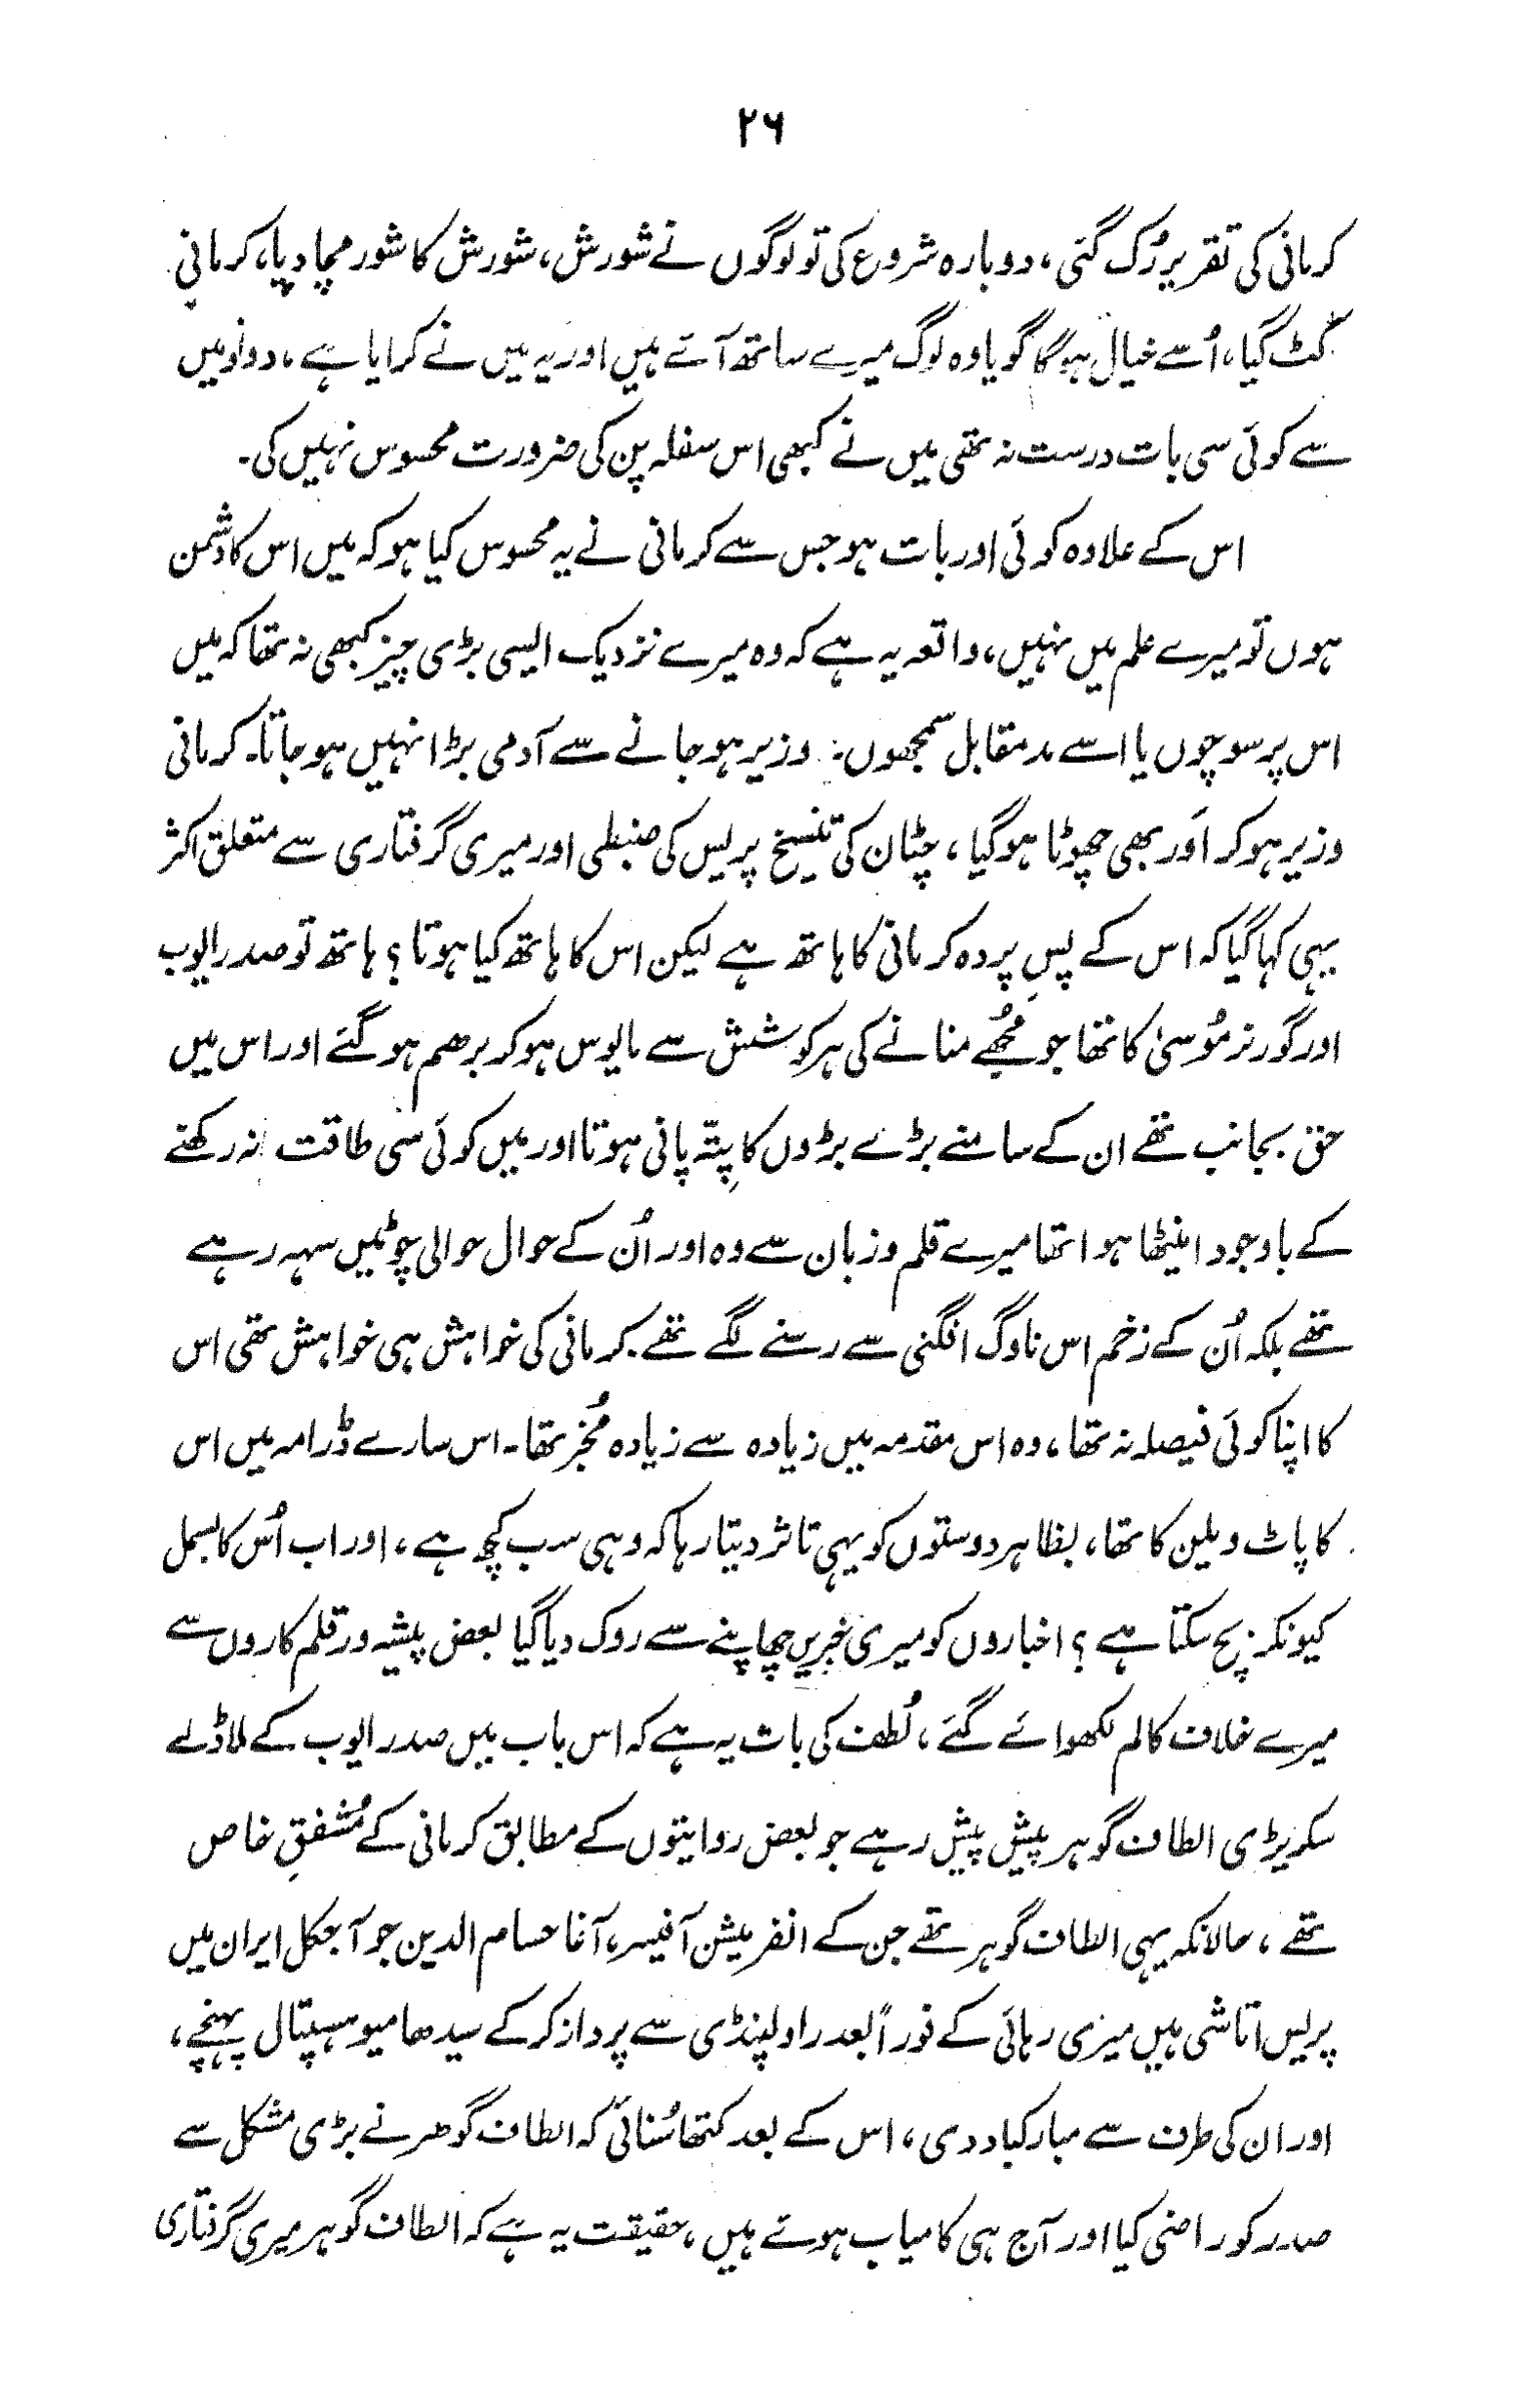 ۲۶
کرمانی کی تقریر رُک گئی، دوبارہ شروع کی تو لوگوں نے شورش، شورش کا شور مچا دیا، کرمانی
کٹ گیا، اُسے خیال ہوگا گویا وہ لوگ میرے ساتھ آئے ہیں اور یہ میں نے کرایا ہے، دونوں میں
سے کوئی سی بات درست نہ تھی میں نے کبھی اس سفلہ پن کی ضرورت محسوس نہیں کی۔
اس کے علاوہ کوئی اور بات ہو جس سے کرمانی نے یہ محسوس کیا ہو کہ میں اس کا دشمن
ہوں تو میرے علم میں نہیں، واقعہ یہ ہے کہ وہ میرے نزدیک ایسی بڑی چیز کبھی نہ تھا کہ میں
اس پر سوچوں یا اسے مدمقابل سمجھوں: وزیر ہو جانے سے آدمی بڑا نہیں ہو جاتا۔ کرمانی
وزیر ہو کر اَور بھی چھوٹا ہو گیا، چٹان کی تنسیخ پریس کی ضبطی اور میری گرفتاری سے متعلق اکثر
یہی کہا گیا کہ اس کے پسِ پردہ کرمانی کا ہاتھ ہے لیکن اس کا ہاتھ کیا ہوتا؟ ہاتھ تو صدر ایوب
اور گورنر مُوسیٰ کا تھا جو مُجھے منانے کی ہر کوشش سے مایوس ہو کر برھم ہو گئے اور اس میں
حق بجانب تھے ان کے سامنے بڑے بڑوں کا پِتّہ پانی ہوتا اور میں کوئی سی طاقت نہ رکھنے
کے باوجود اینٹھا ہوا تھا میرے قلم و زبان سے وہ اور اُن کے حوال حوالی چوٹیں سہہ رہے
تھے بلکہ اُن کے زخم اس ناوگ افگنی سے رسنے لگے تھے۔ کرمانی کی خواہش ہی خواہش تھی اس
کا اپنا کوئی فیصلہ نہ تھا، وہ اس مقدمہ میں زیادہ سے زیادہ مُخبر تھا۔ اس سارے ڈرامہ میں اس
کا پاٹ ویلین کا تھا، بظاہر دوستوں کو یہی تاثر دیتا رہا کہ وہی سب کچھ ہے، اور اب اُس کا بسمل
کیونکر بچ سکتا ہے؟ اخباروں کو میری خبریں چھاپنے سے روک دیا گیا بعض پیشہ ور قلم کاروں سے
میرے خلاف کالم لکھوائے گئے، لُطف کی بات یہ ہے کہ اس باب میں صدر ایوب کے لاڈلے
سکریڑی الطاف گوہر پیش پیش رہے جو بعض روایتوں کے مطابق کرمانی کے مُشفقِ خاص
تھے، حالانکہ یہی الطاف گوہر تھے جن کے انفرمیشن آفیسر، آغا حسام الدین جو آجکل ایران میں
پریس اتاشی ہیں میری رہائی کے فوراً بعد راولپنڈی سے پرواز کر کے سیدھا میو ہسپتال پہنچے،
اور ان کی طرف سے مبارکباد دی، اس کے بعد کتھا سُنائی کہ الطاف گوھر نے بڑی مشکل سے
صدر کو راضی کیا اور آج ہی کامیاب ہوئے ہیں، حقیقت یہ ہے کہ الطاف گوہر میری گرفتاری